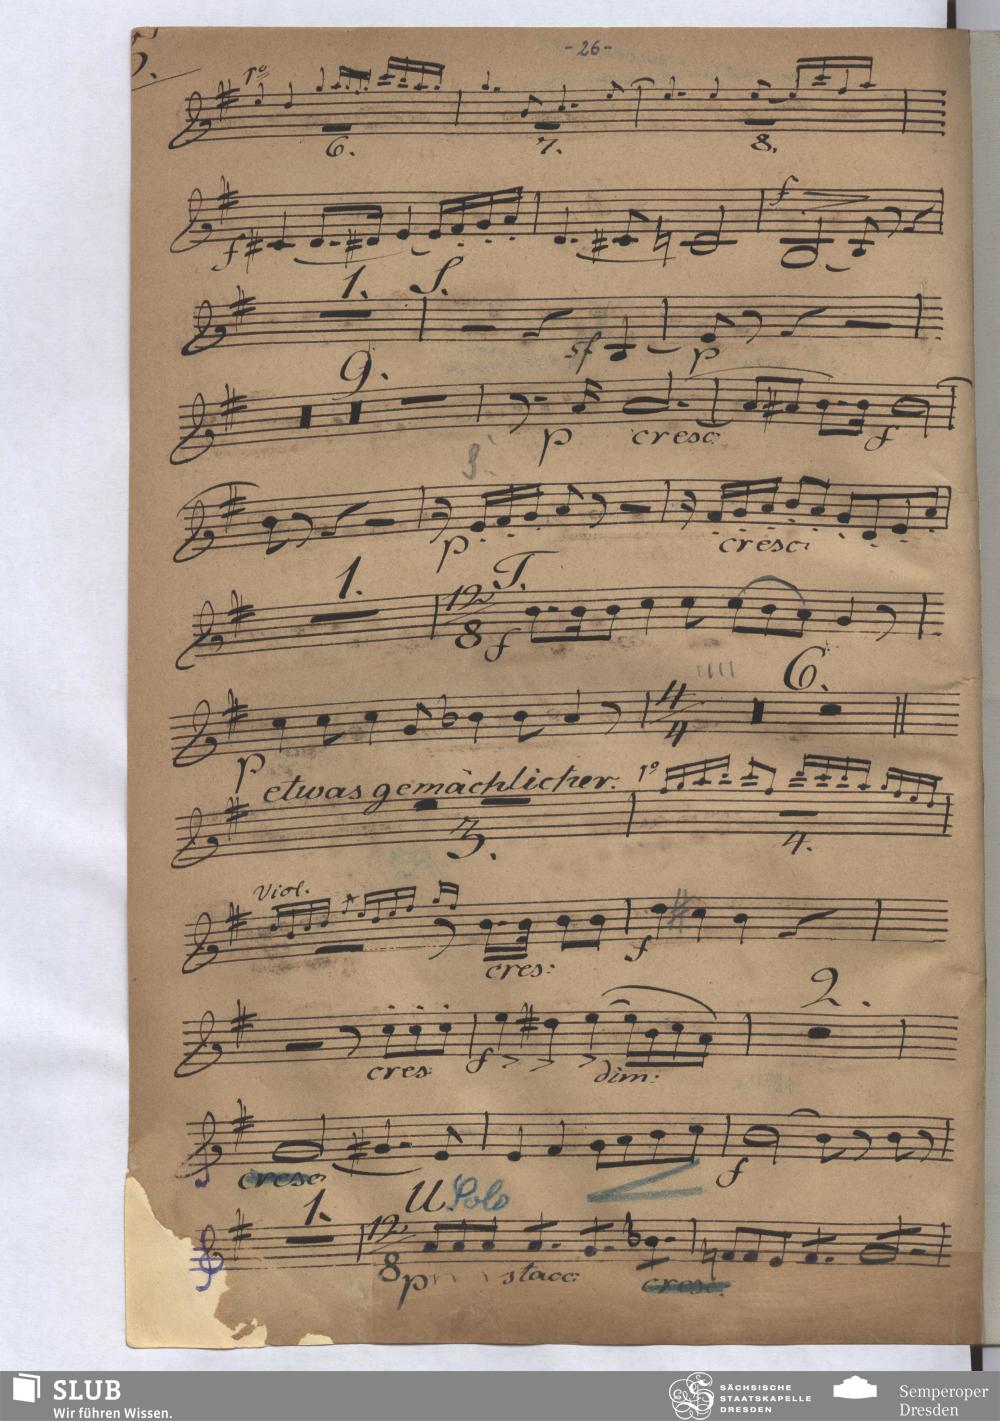 -26-
1º
6. 7. 8.
f f
1. S.
sf p
9.
p cresc f
p cresc:
1. T.
12 8 f
6.
4 4
p
etwas gemächlicher. 1º
3. 4.
Viol.
cres: f
2.
cres: f dim:
cresc f
1. U Solo
12 8 p stacc: cresc.
SLUB
Wir führen Wissen.
SÄCHSISCHE
STAATSKAPELLE
DRESDEN
Semperoper
Dresden